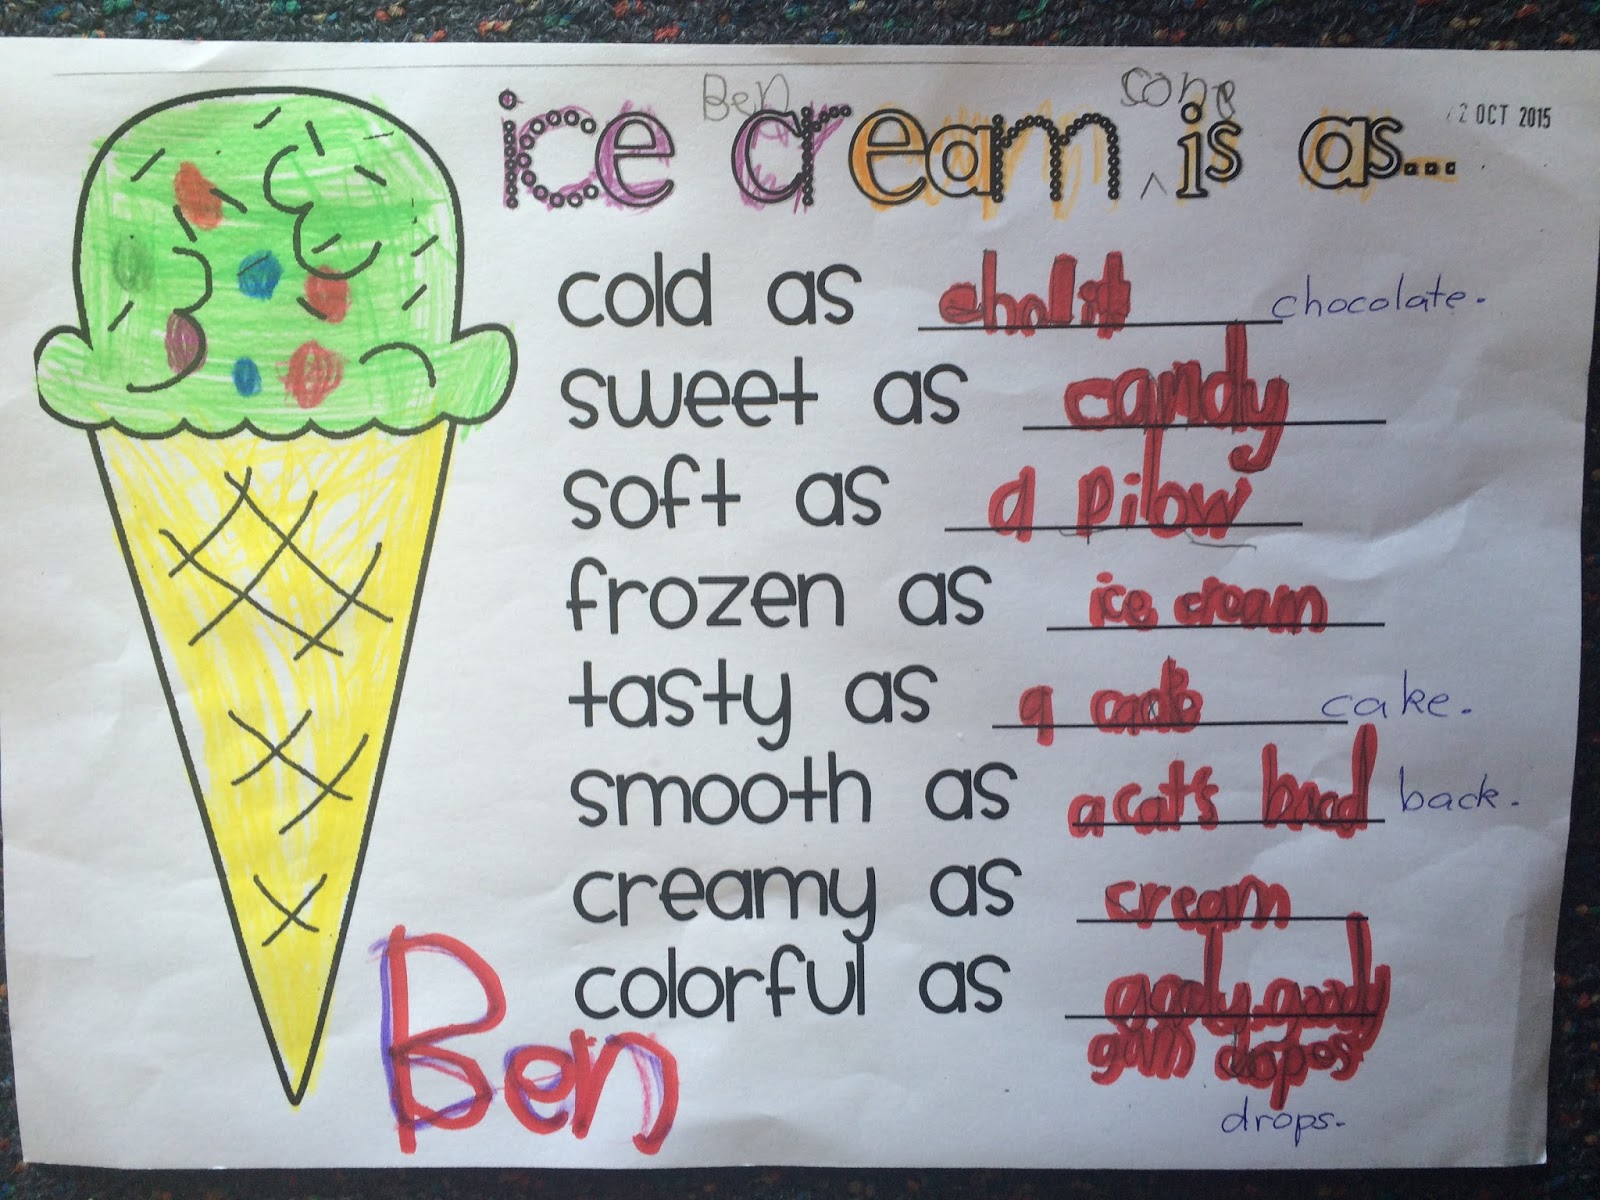 Ben cone
ice cream ^ is as...
2 OCT 2015
cold as cholit chocolate.
sweet as candy
soft as a pilow
frozen as ice cream
tasty as a cake cake.
smooth as a cat's bacd back.
creamy as cream
colorful as goody goody
gum dopos
drops.
Ben